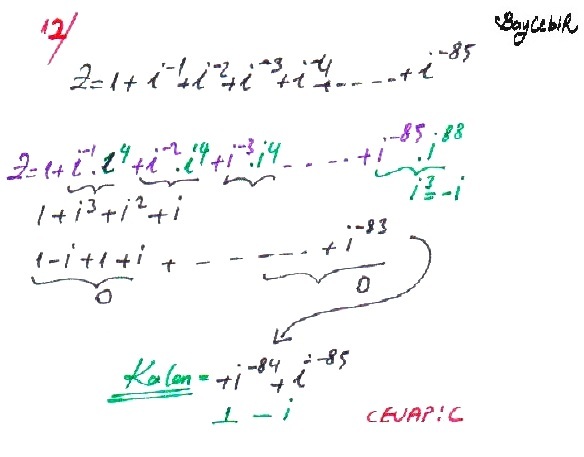 12/
BayCebiR
Z=1+i⁻¹+i⁻²+i⁻³+i⁻⁴+.....+i⁻⁸⁵
Z=1+i⁻¹.i⁴+i⁻².i⁴+i⁻³.i⁴.....+i⁻⁸⁵.i⁸⁸
i³=-i
1+i³+i²+i
1-i+1+i + - - - ....+i⁻⁸³
0 0
Kalan=+i⁻⁸⁴+i⁻⁸⁵
1 - i
CEVAP:C